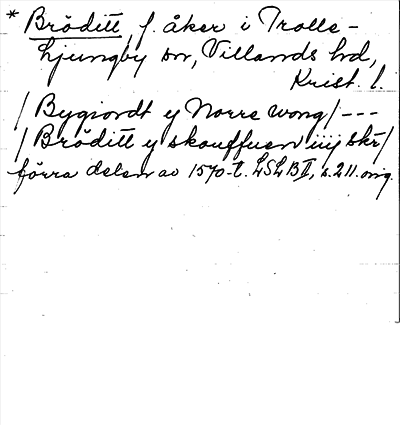 * Brödett, f. åker i Trolle-
Ljungby sn, Villands hd,
Krist. l.
/ Bygiordt y Norre wong / ---
/ Brödett y skouffuen iiij skr /
förra delen av 1570-t. LSLB II, s. 211. orig.